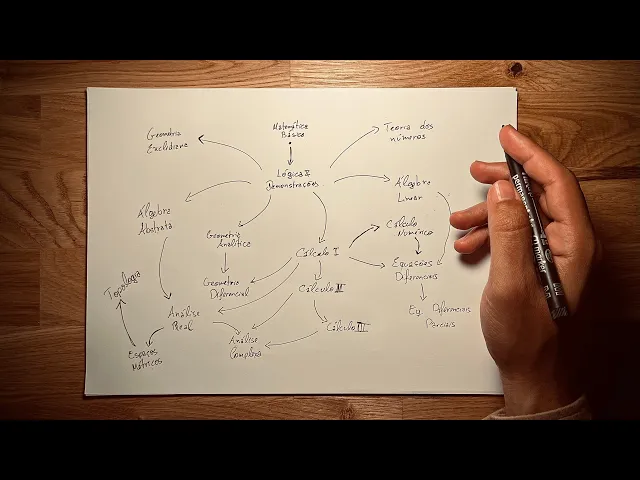 Matemática
Básica
Geometria
Euclidiana
Teoria dos
números
Lógica E
Demonstrações
Álgebra
Linear
Álgebra
Abstrata
Geometria
Analítica
Cálculo
Numérico
Cálculo I
Equações
Diferenciais
Topologia
Geometria
Diferencial
Cálculo II
Análise
Real
Eq. Diferenciais
Parciais
Cálculo III
Análise
Complexa
Espaços
Métricos
permanent
marker